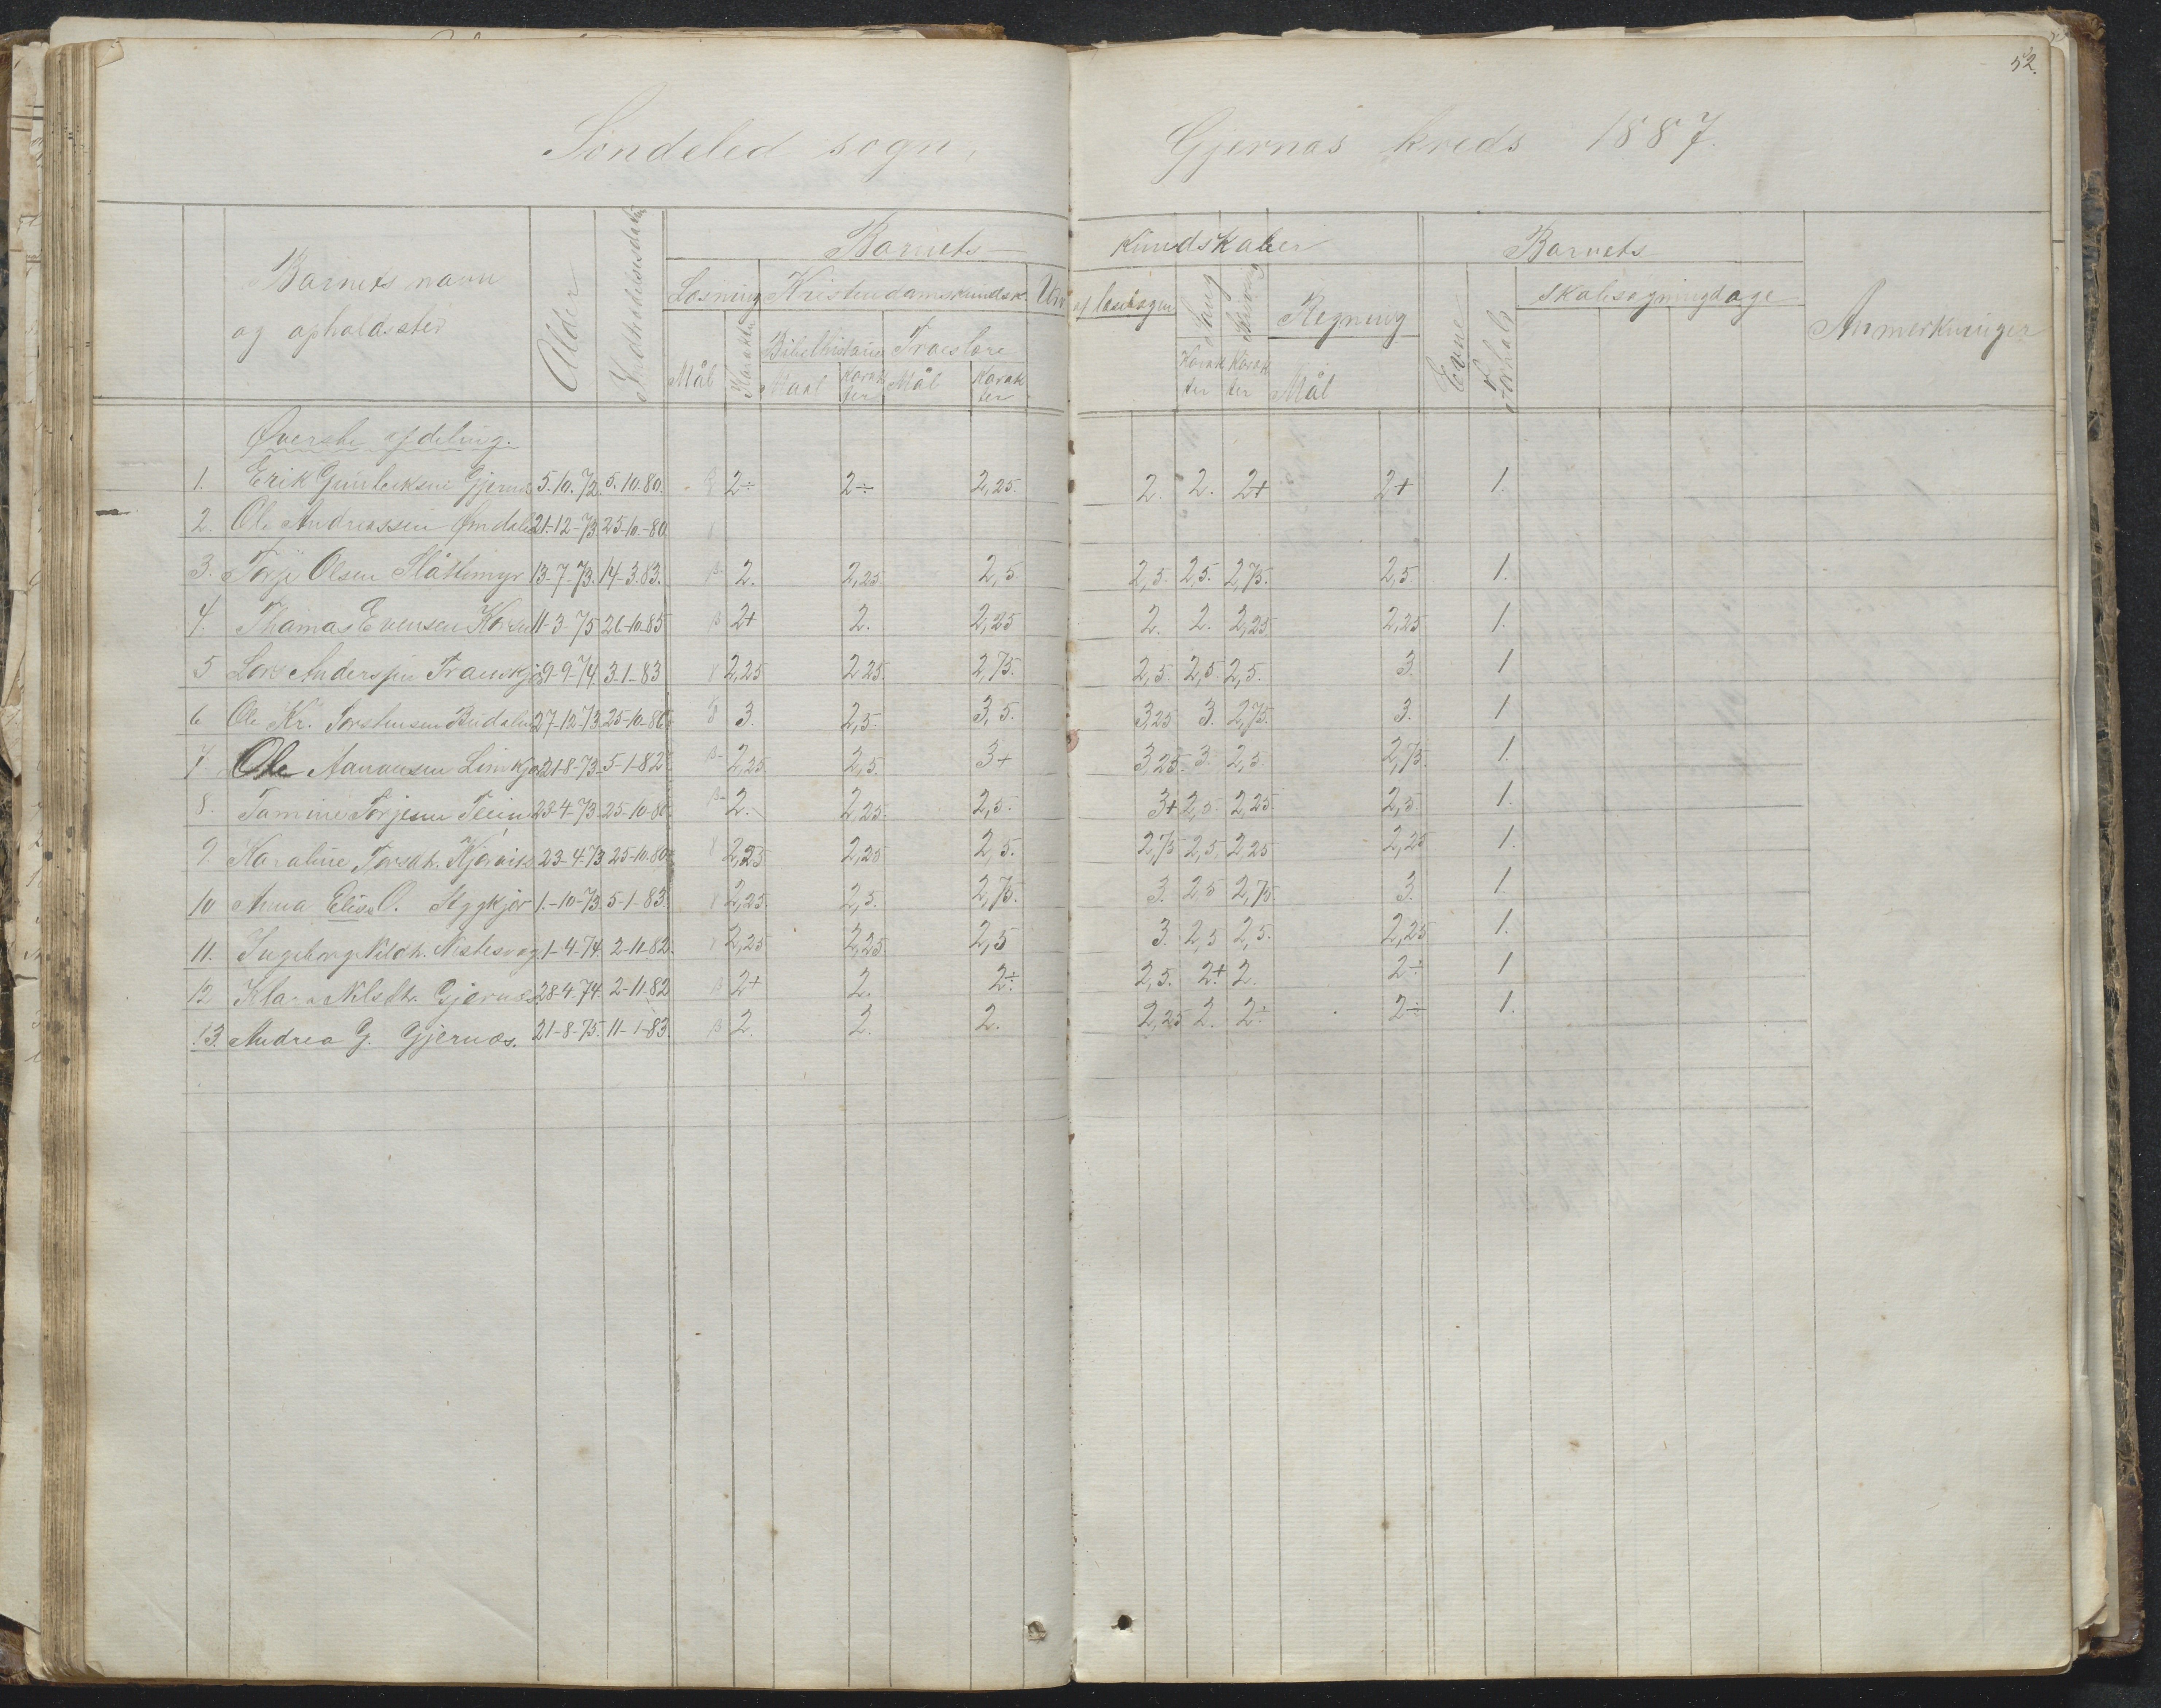 52.
Söndeled sogn, Gjernas kreds 1887.
Barnets kundskaber Barnets
Barnets navn og opholdssted Alder Indtrædelsesdato Læsning Kristendomskundsk. Udv. af læsebogen Sang Skrivning Regning Evne Forhold skolesøgningdage Anmerkninger
Bibelhistorie Troeslære
Mål Karakter Maal Karakter Mål Karakter Karakter Karakter Mål
Øverste afdeling.
1. Erik Gjernes 5.10.72. 5.10.80. 2÷ 2÷ 2,25. 2. 2. 2+ 2+ 1.
2. Ole Andreassen 21-12-73 25-10-80.
3. Torje Olsen Slåttemyr 13-7-73. 14-3.83. 2. 2,25 2,5. 2,5. 2,5. 2,75. 2,5 1.
4. Thomas Evensen 11-3-75 26-10-85 β 2+ 2. 2,25 2. 2. 2,25 2,25 1.
5 Andersen 9-9-74 3-1-83 2,25 2 25. 2,75. 2,5. 2,5 2,5. 3. 1
6 Ole Kr. Torstensen 27-12-73 25-10-80 3. 2,5. 3,5. 3,25 3. 2,75. 3. 1
7. Ole Aanonsen 21-8-73 5-1-82 β 2,25 2,5. 3+ 3,25. 3. 2,5. 2,75. 1.
8. Tomine Torjesen 23-4-73 25-10-80 β 2. 2,25. 2,5. 3+ 2,5. 2,25. 2,5. 1.
9. Karoline 23-4-73 25-10-80 2,25 2,25 2,5. 2,75 2,5. 2,25 2,25 1.
10 Anna Elise O. 1.-10-73 5-1-83. 2,25. 2,5. 2,75. 3. 2,5 2,75 3. 1.
11. Ingeborg 1-4-74 2-11-82. 2,25 2,25 2,5 3. 2,5 2,5. 2,25 1.
12 Klara Nilsdtr. Gjernes 28-4-74. 2-11-82 β 2+ 2. 2÷ 2,5. 2+ 2. 2÷ 1
13. Andrea G. Gjernæs. 21-8-75. 11-1-83. β 2. 2. 2. 2,25 2. 2÷ 2÷ 1.